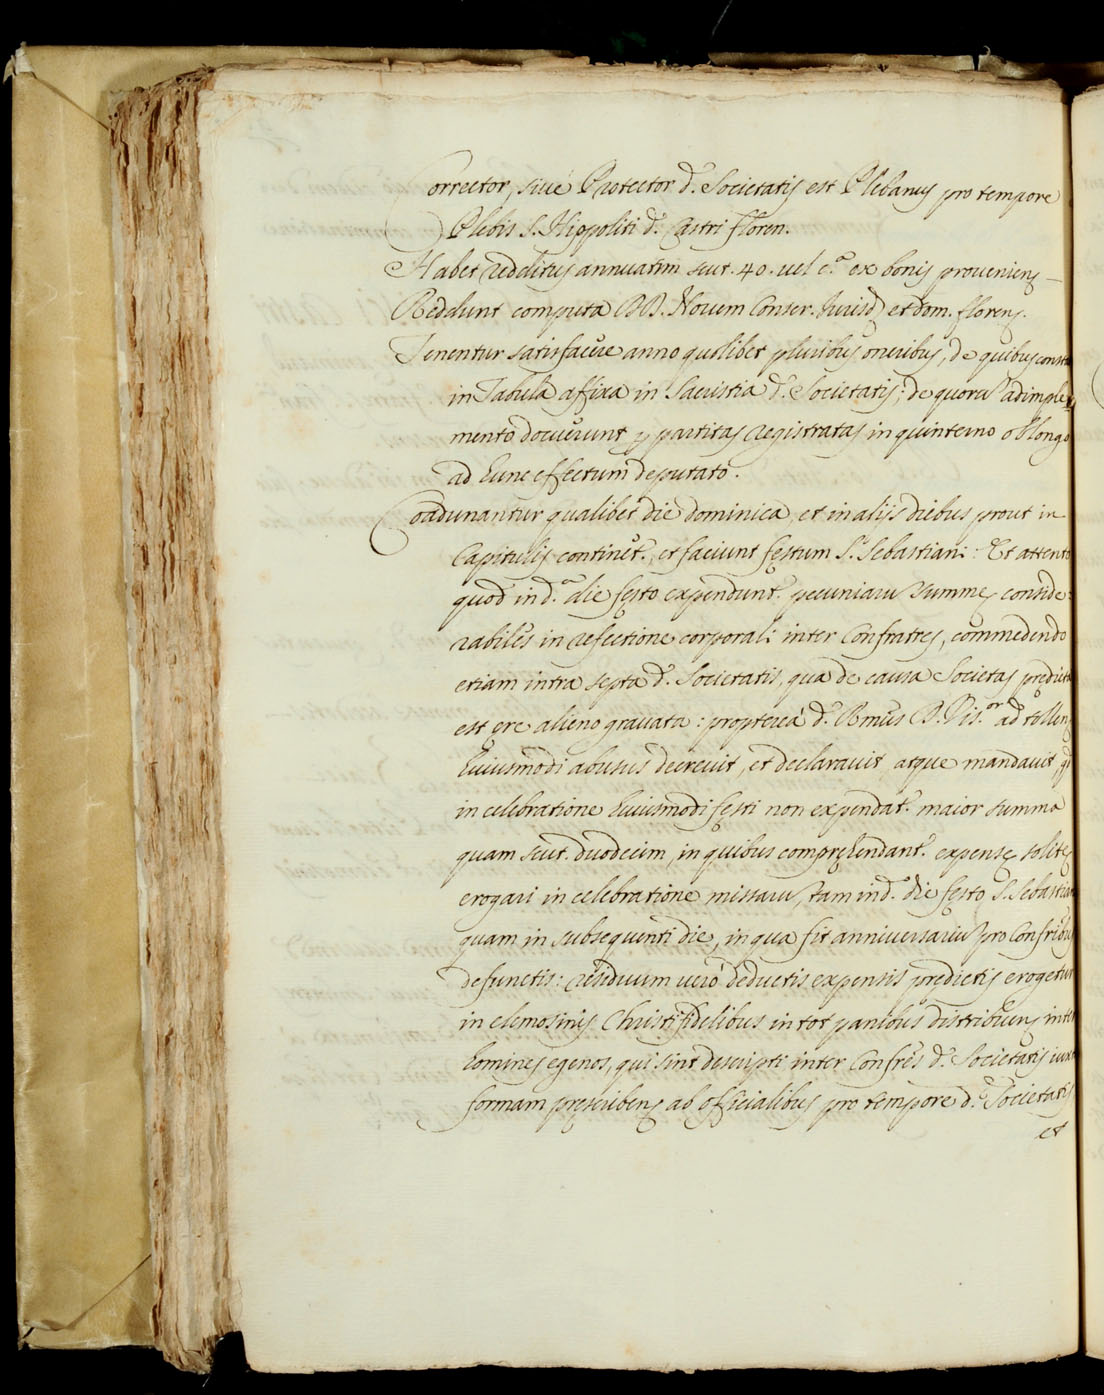 Corrector, siue Protector d. Societatis est Plebanus pro tempore
Plebis S. Hippoliti d. Castri floren.
Habet redditus annuatim scut. 40. uel c.ª ex bonis proueniens
Reddunt computa DD. Nouem Conser. Iurisd. et dom. floren.
Tenentur satisfacere anno quolibet pluribus oneribus, de quibus consta
in Tabula affixa in Sacristia d. Societatis; de quorū adimple
mento docuerunt p partitas registratas in quinterno oblongo
ad hunc effectum deputato.
Coadunantur qualibet die dominica, et in alijs diebus prout in
Capitulis continet., et faciunt festum S.ti Sebastiani: Et attento
quod in d.ª die festo expendunt. pecuniarū summe conside:
rabiles in refectione corporali inter Confratres, commedendo
etiam intra septa d. Societatis, qua de causa Societas predicta
est ęre alieno grauata: propterea d. Rmus D. Vis.or ad tollen
huiusmodi abusus decreuit, et declarauit, atque mandauit, q
in celebratione huiusmodi festi non expendat. maior summa
quam scut. duodecim, in quibus comprehendant. expensę solitę
erogari in celebratione missarū, tam in d. die festo S. Sebastian
quam in subsequenti die, in qua fit anniuersariū pro Confribus
defunctis: residuum uero deductis expensis predictis erogetur
in elemosinis Christifidelibus in tot panibus distribuens inter
homines egenos, qui sint descripti inter Confres d. Societatis iuxt
formam prescribens ab officialibus pro tempore d.ę Societatis
et